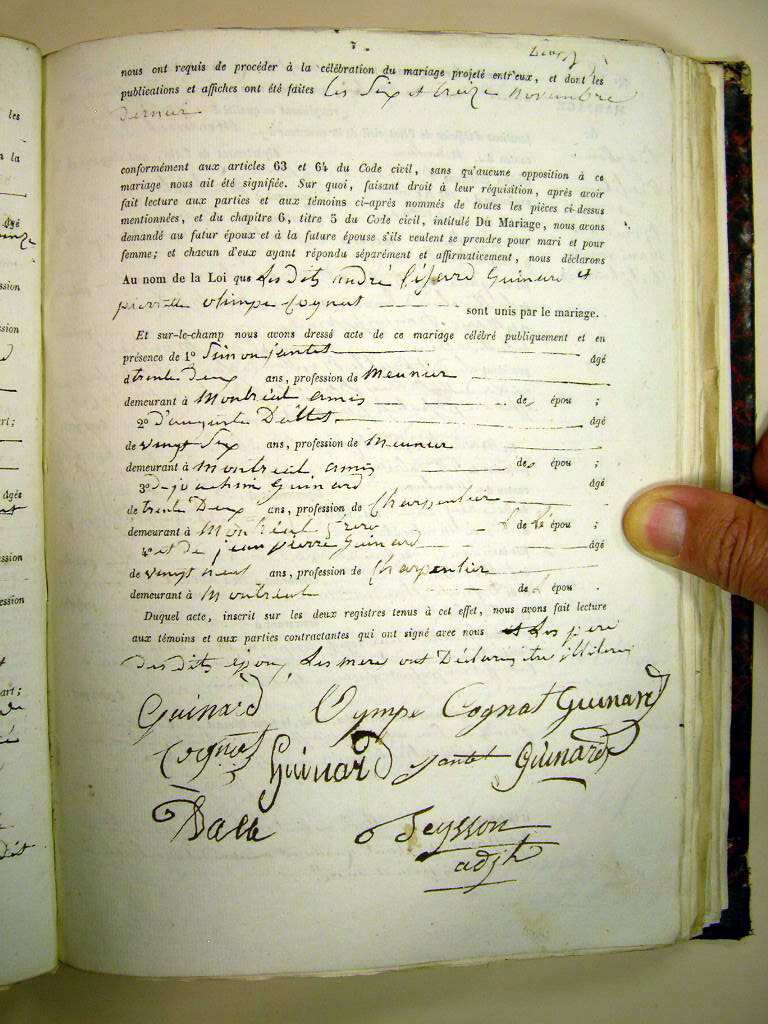 nous ont requis de procéder à la célébration du mariage projeté entr'eux, et dont les
publications et affiches ont été faites les Six et treize novembre
Dernier
conformément aux articles 63 et 64 du Code civil, sans qu'aucune opposition à ce
mariage nous ait été signifiée. Sur quoi, faisant droit à leur réquisition, après avoir
fait lecture aux parties et aux témoins ci-après nommés de toutes les pièces ci-dessus
mentionnées, et du chapitre 6, titre 5 du Code civil, intitulé Du Mariage, nous avons
demandé au futur époux et à la future épouse s'ils veulent se prendre pour mari et pour
femme; et chacun d'eux ayant répondu séparément et affirmativement, nous déclarons
Au nom de la Loi que Les dits andré Guinard et
pierrette olimpe Cognat sont unis par le mariage.
Et sur-le-champ nous avons dressé acte de ce mariage célébré publiquement et en
présence de 1° Simon jantet âgé
d trente Deux ans, profession de Meunier
demeurant à Montréal amis des épou ;
2° D'auguste Dallet âgé
de vingt Six ans, profession de Meunier
demeurant à Montréal amis des épou ;
3° De joachim Guinard âgé
de trente Deux ans, profession de Charpentier
demeurant à Montréal frere de épou ;
4° et de jean pierre Guinard âgé
de vingt neuf ans, profession de Charpentier
demeurant à Montréal de épou
Duquel acte, inscrit sur les deux registres tenus à cet effet, nous avons fait lecture
aux témoins et aux parties contractantes qui ont signé avec nous et Les pere
des dits époux, Les mere ont Déclaré être illiterés
Guinard Olympe Cognat Guinard
Cognat Guinard jantet Guinard
Dalle Seysson
adjt